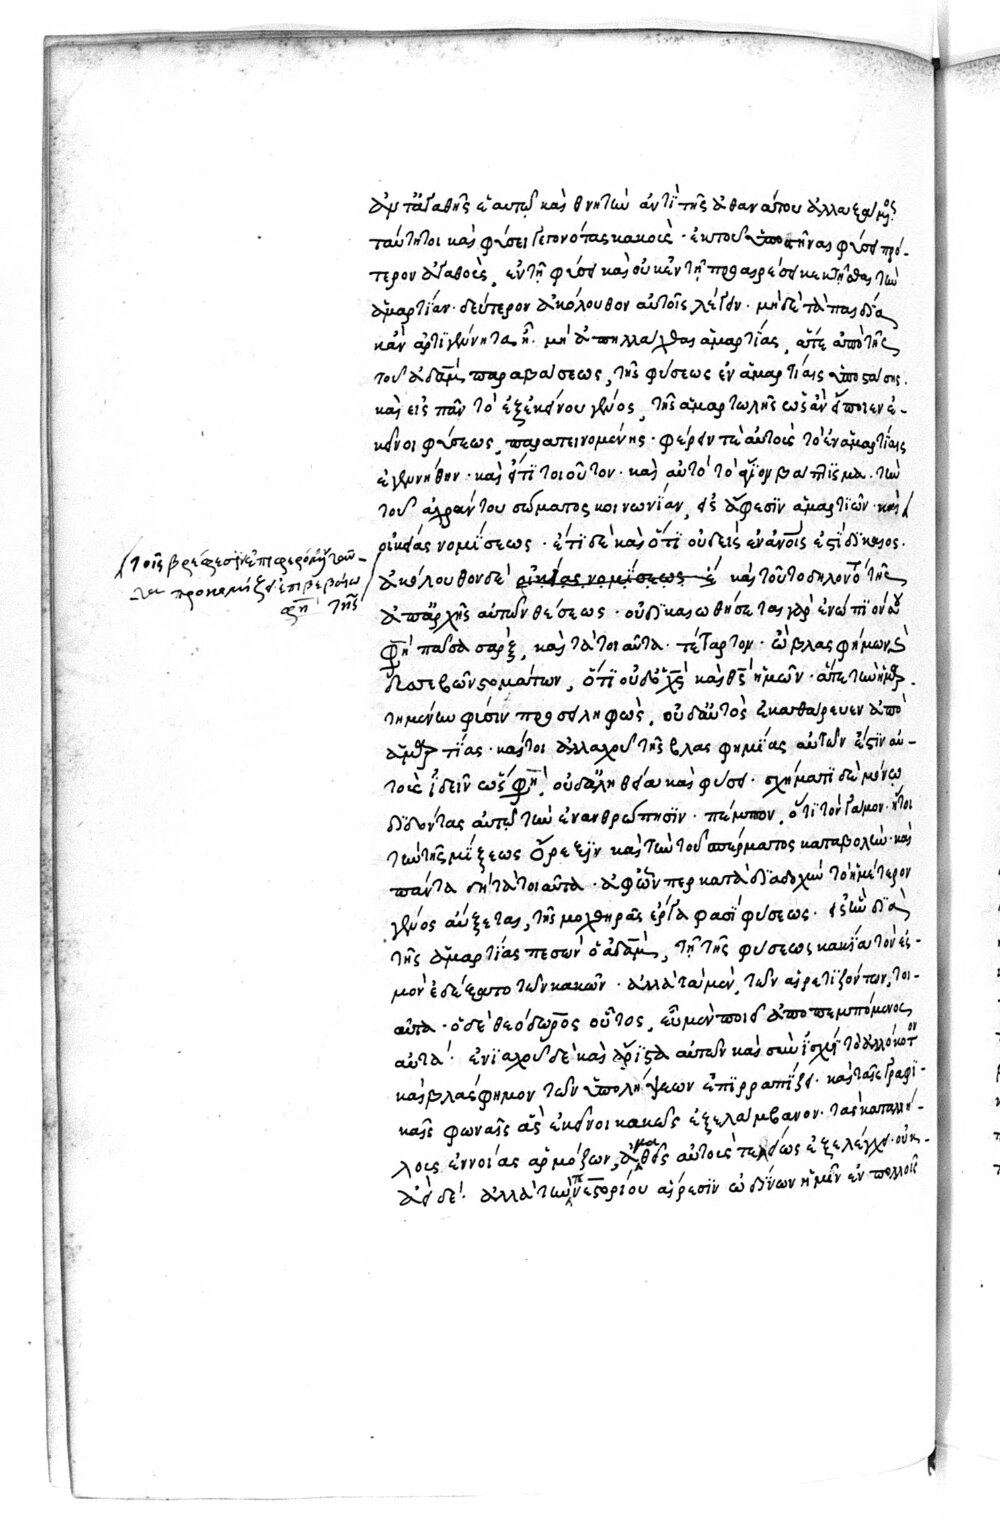 ἀντ' ἀγαθῆς ἑαυτῷ καὶ θνητὴν ἀντὶ τῆς ἀθανάτου ἀλλαξαμένοις
ταύτῃ τοι καὶ φύσει γεγονότας κακοὺς· ἐκ τοῦ ὑποστῆναι φύσει πρό-
τερον ἀγαθοὺς, ἐν τῇ φύσει καὶ οὐκ ἐν τῇ προαιρέσει κεκτῆσθαι τὴν
ἁμαρτίαν· δεύτερον ἀκόλουθον αὐτοῖς λέγειν· μηδὲ τὰ παιδία
κἂν ἀρτιγέννητα ᾖ· μὴ ἀπηλλάχθαι ἁμαρτίας, ἅτε ἀπὸ τῆς
τοῦ ἀδὰμ παραβάσεως, τῆς φύσεως ἐν ἁμαρτίαις ὑποστάσης.
καὶ εἰς πᾶν τὸ ἐξ ἐκείνου γένος, τῆς ἁμαρτωλῆς ὡς ἂν εἴποιεν ἐ-
κεῖνοι φύσεως, παρατεινομένης· φέρειν τε αὐτοὺς τὸ ἐν ἁμαρτίαις
ἐγεννήθην· καὶ εἴ τι τοιοῦτον· καὶ αὐτὸ τὸ ἅγιον βάπτισμα· τὴν
τοῦ ἀχράντου σώματος κοινωνίαν, εἰς ἄφεσιν ἁμαρτιῶν· καὶ
τοῖς βρέφεσιν ἐπιφερόμενα
οἰκείας νομίσεως· ἔτι δὲ καὶ ὅτι οὐδεὶς ἐν ἀνοις ἐστὶ δίκαιος.
ἀκόλουθον δὲ οἰκείας νομίσεως καὶ τοῦτο δηλονότι τῆς
ἀπ' ἀρχῆς αὐτῶν θέσεως· οὐ δικαιωθήσεται γὰρ ἐνώπιόν σου
φησὶ πᾶσα σάρξ, καὶ τὰ τοιαῦτα· τέταρτον· ὦ βλασφήμων καὶ
δυσσεβῶν στομάτων, ὅτι οὐδὲ ὁ χς καὶ θς ἡμῶν· ἅτε τὴν ἡμαρ-
τημένην φύσιν προσειληφὼς, οὐδ' αὐτὸς ἐκαθάρευεν ἀπὸ
ἁμαρτίας· καίτοι ἀλλαχοῦ τῆς βλασφημίας αὐτῶν ἐστὶν αὐ-
τοὺς ἰδεῖν ὥς φησὶ, οὐδ' ἀληθείᾳ καὶ φύσει· σχήματι δὲ μόνῳ
διδόντας αὐτῷ τὴν ἐνανθρώπησιν· πέμπτον, ὅτι τὸν γάμον· ἤτοι
τὴν τῆς μίξεως ὄρεξιν καὶ τὴν τοῦ σπέρματος καταβολὴν· καὶ
πάντα δὴ τὰ τοιαῦτα· ἀφ' ὧνπερ κατὰ διαδοχὴν τὸ ἡμέτερον
γένος αὔξεται, τῆς μοχθηρᾶς ἔργα φασὶ φύσεως· εἰς ἣν διὰ
τῆς ἁμαρτίας πεσὼν ὁ ἀδὰμ, τῇ τῆς φύσεως κακίᾳ τὸν ἑσ-
μὸν ἐδέξατο τῶν κακῶν· ἀλλὰ ταῦτα μὲν, τῶν αἱρετιζόντων, τοι-
αῦτα· ὁ δὲ θεόδωρος οὗτος, εὖ μὲν ποιεῖ ἀποπεμπόμενος
αὐτά· ἐνιαχοῦ δὲ καὶ ἄριστα αὐτῶν καὶ σὺν ἰσχύϊ τὸ ἀλλόκοτον
καὶ βλάσφημον τῶν ὑπολήψεων ἐπιρραπίζει· καὶ ταῖς γραφι-
καῖς φωναῖς ἃς ἐκεῖνοι κακῶς ἐξελάμβανον· τὰς καταλλή-
λους ἐννοίας ἁρμόζων, ἀμαθεῖς αὐτοὺς τελείως ἐξελέγχει· οὐκ
ἀεὶ δέ· ἀλλὰ τὴν νεστορίου αἵρεσιν ὠδίνων ἡμῖν ἐν πολλοῖς